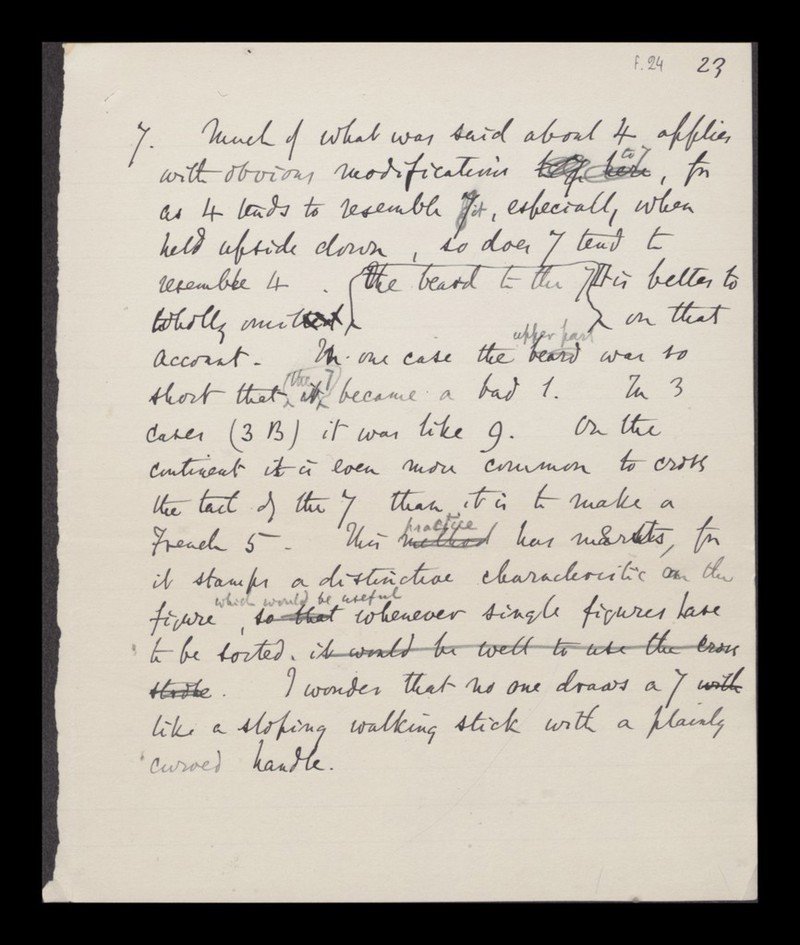 F.24 23
7. Much of what was said about 4 applies
to 7
with obvious modifications here, for
as 4 tends to resemble 7 it, especially when
held upside down, so does 7 tend to
resemble 4. {the beard to the 7} It is better to
wholly omitted on that
upper part
account. In one case the beard was so
(the 7)
short that it became a bad 1. In 3
cases (3 B) it was like 9. On the
continent it is even more common to cross
the tail of the 7 than it is to make a
practice
French 5. This method has merits, for
it stamps a distinctive characteristic on the
which would be useful
figure, so that whenever single figures have
to be sorted. it would be well to use the cross
stroke. I wonder that no one draws a 7 with
like a sloping walking stick with a plainly
curved handle.